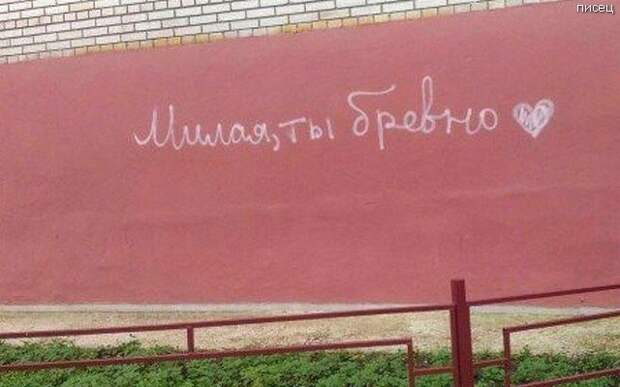 писец
Милая, ты бревно ♥